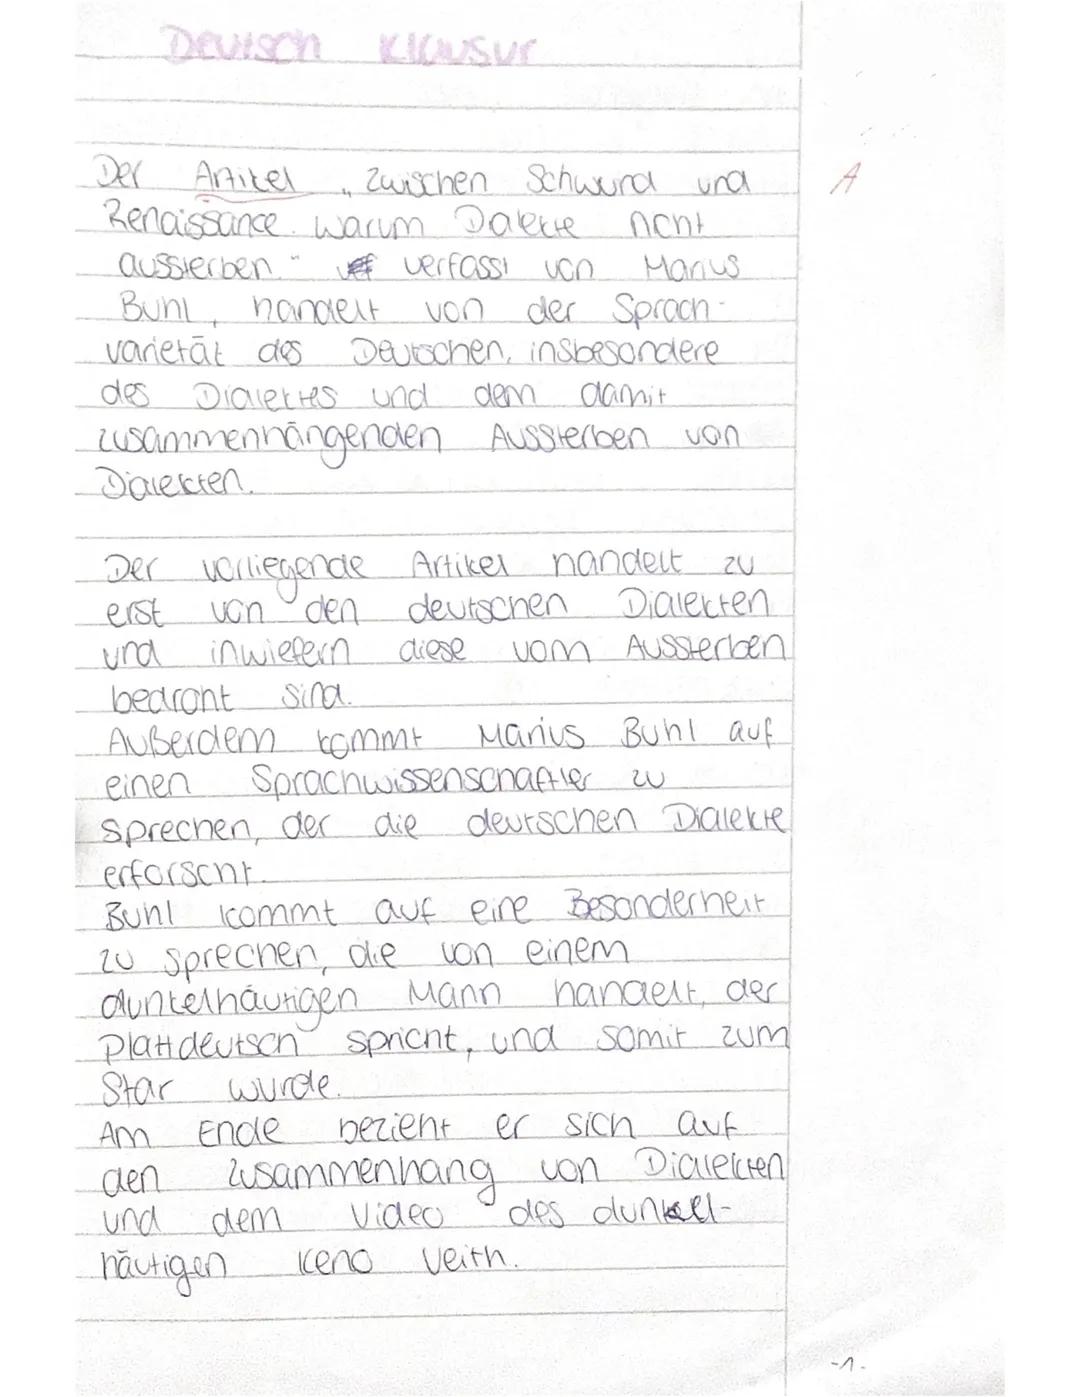 Deutsch Klausur
Der Artikel „Zwischen Schwund und A
Renaissance. Warum Dialekte nicht
aussterben." verfasst von Marius
Buhl, handelt von der Sprach-
varietät des Deutschen, insbesondere
des Dialektes und dem damit
zusammenhängenden Aussterben von
Dialekten.
Der vorliegende Artikel handelt zu
erst von den deutschen Dialekten
und inwiefern diese vom Aussterben
bedroht sind.
Außerdem kommt Marius Buhl auf
einen Sprachwissenschaftler zu
sprechen, der die deutschen Dialekte
erforscht.
Buhl kommt auf eine Besonderheit
zu sprechen, die von einem
dunkelhäutigen Mann handelt, der
Plattdeutsch spricht, und somit zum
Star wurde.
Am Ende bezieht er sich auf
den Zusammenhang von Dialekten
und dem Video des dunkel-
häutigen Keno Veith.
-1-